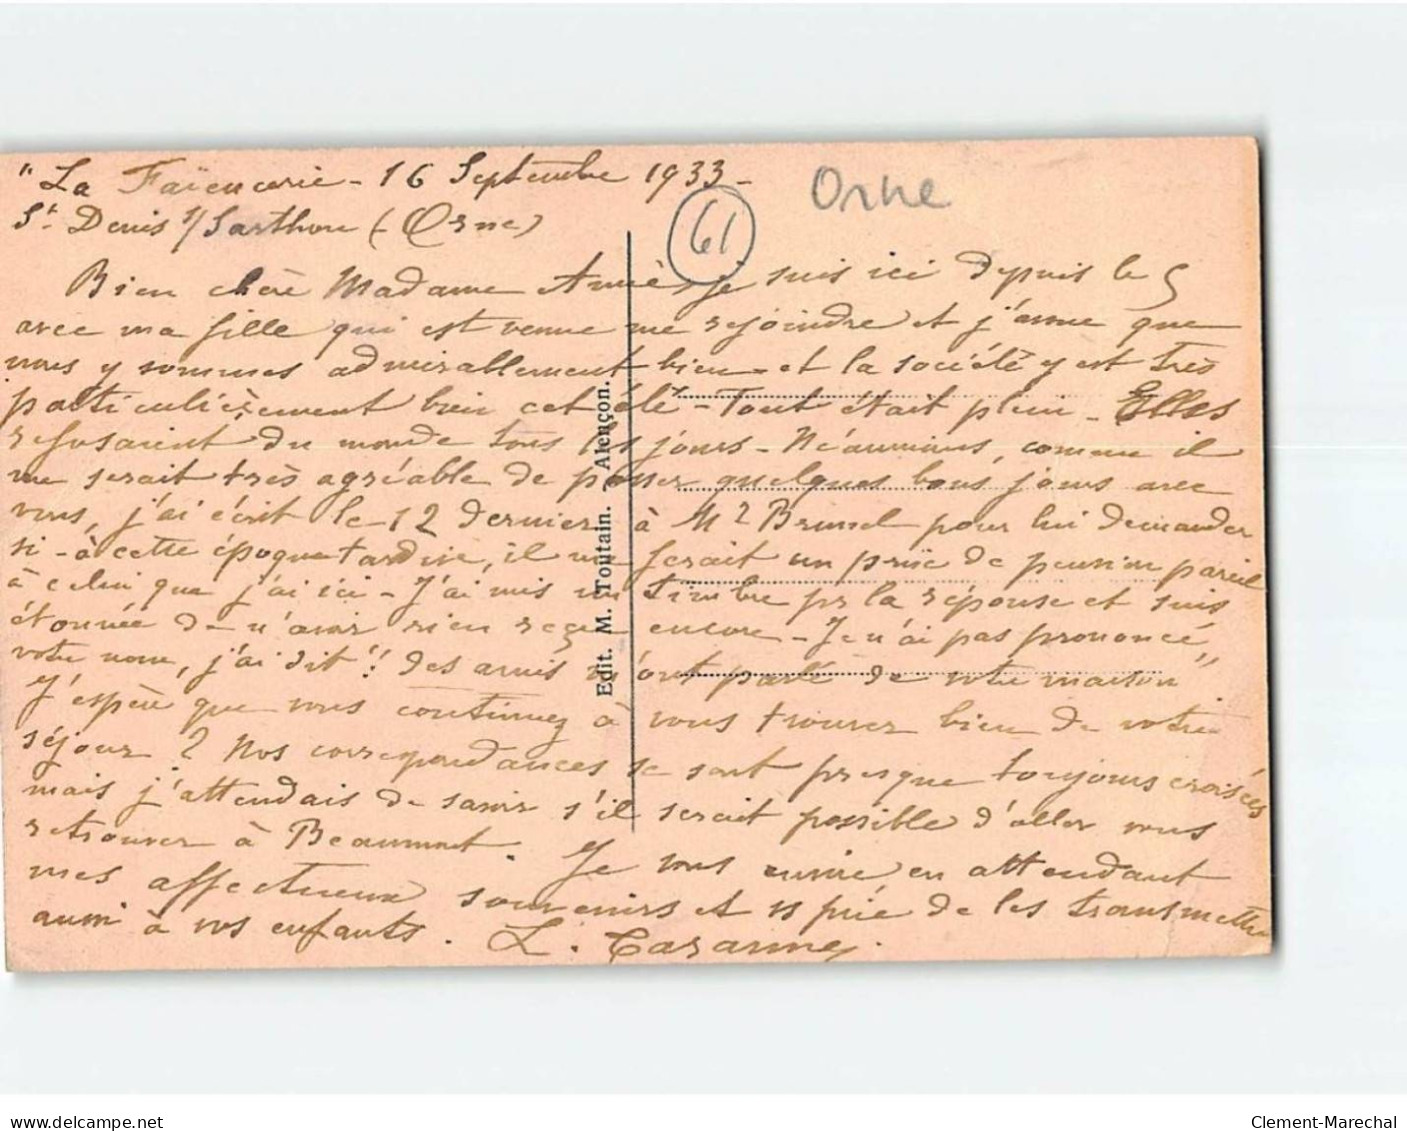 "La Faïencerie - 16 Septembre 1933 -
Orne
61
St Denis s/ Sarthon (Orne)
Bien chère Madame je suis ici depuis le 5
avec ma fille qui est venue me rejoindre et j'avoue que
nous y sommes admirablement bien et la société y est très
particulièrement bien cet été - Tout était plein - Elles
refusaient du monde tous les jours - Néanmoins, comme il
me serait très agréable de passer quelques bons jours avec
vous, j'ai écrit le 12 dernier à Mr Brunel pour lui demander
si - à cette époque tardive, il me ferait un prix de pension pareil
à celui que j'ai ici - J'ai mis un timbre pr la réponse et suis
étonnée de n'avoir rien reçu encore - Je n'ai pas prononcé
votre nom, j'ai dit "des amis m'ont parlé de votre maison"
J'espère que vous continuez à vous trouver bien de votre
séjour ? Nos correspondances se sont presque toujours croisées
mais j'attendais de savoir s'il serait possible d'aller vous
retrouver à Beaumont. Je vous envoie en attendant
mes affectueux souvenirs et vs prie de les transmettre
aussi à vos enfants. L.
Edit. M. Toutain. - Alençon.
delcampe.net
Clement-Marechal